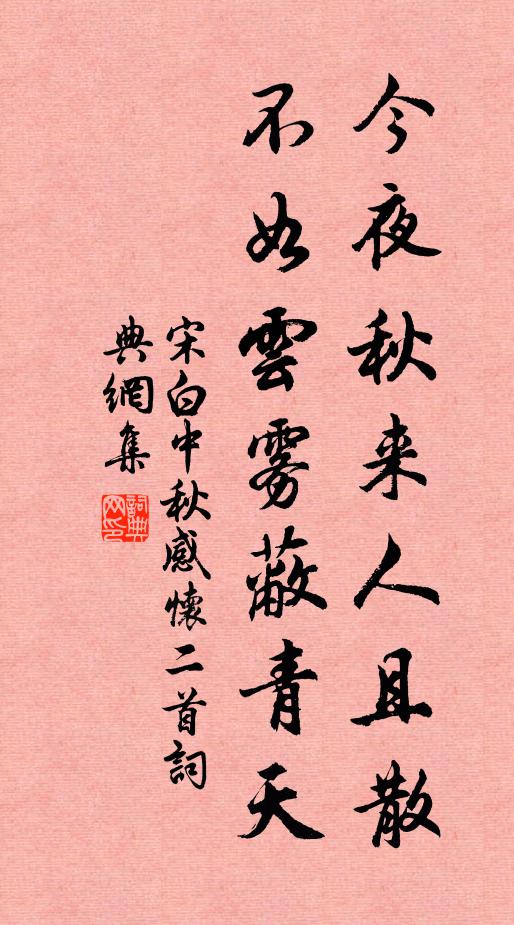 今夜秋来人且散
不如雲雾蔽青天
宋白中秋感懷二首詞
典網集
詞典网印